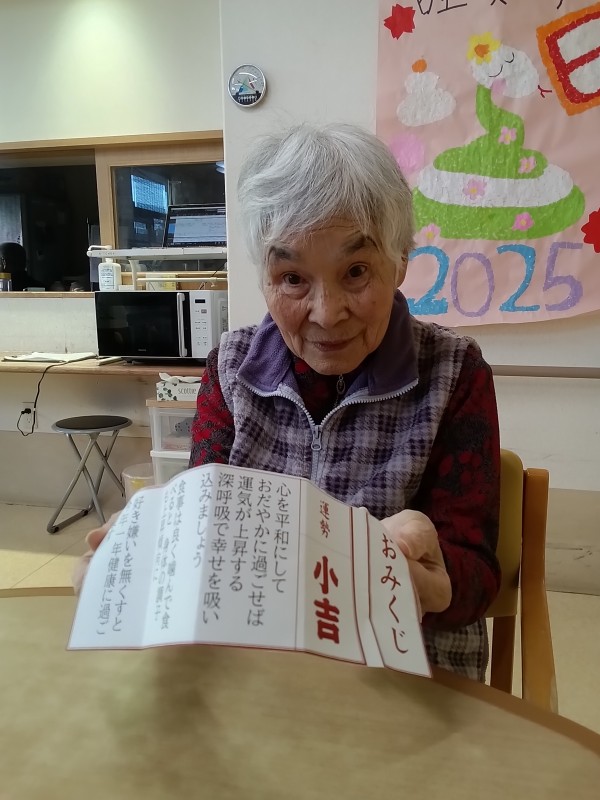 2025
おみくじ
運勢
小吉
心を平和にして
おだやかに過ごせば
運気が上昇する
深呼吸で幸せを吸い
込みましょう
食事は良く噛んで食
好き嫌いを無くすと
一年健康に過ご